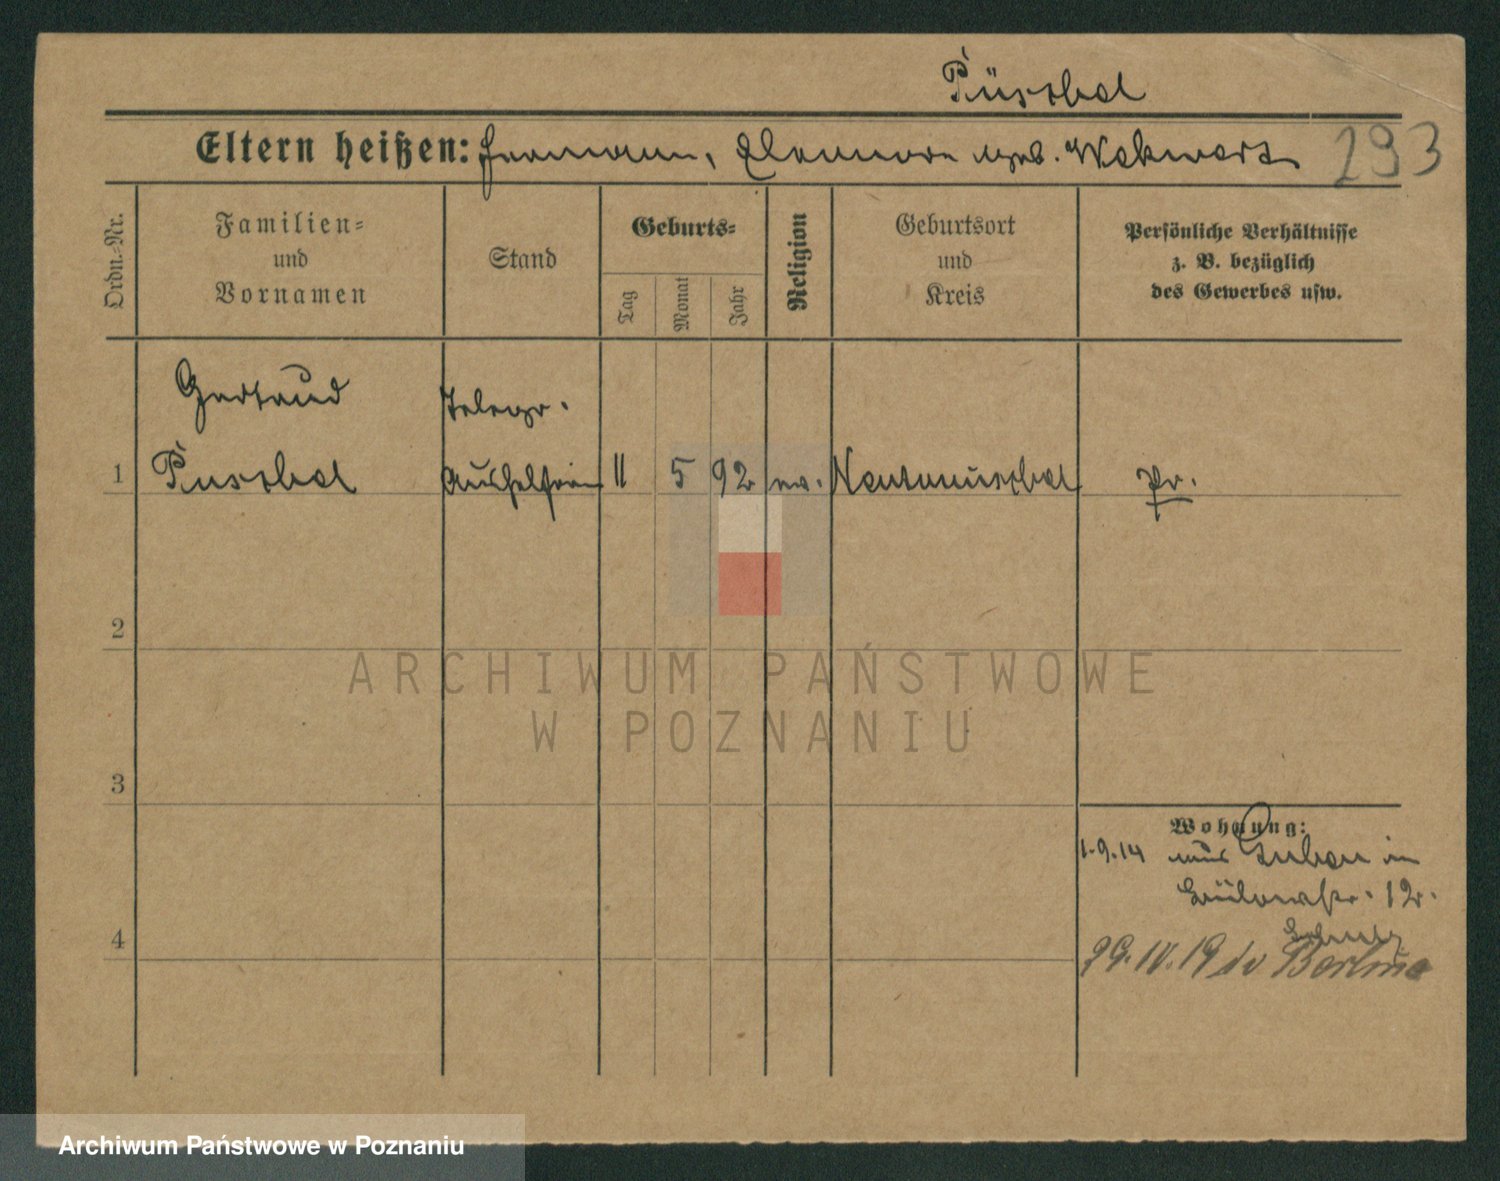 Püschel
Eltern heißen: Hermann, Eleonore geb. Wekwert
293
Ordn.-Nr.
Familien-
und
Vornamen
Stand
Geburts-
Tag
Monat
Jahr
Religion
Geburtsort
und
Kreis
Persönliche Verhältnisse
z. B. bezüglich
des Gewerbes usw.
Gertrud
Telegr.
1
Püschel
Aushelferin
11
5
92
ev.
Neutomischel
Pr.
2
ARCHIWUM PAŃSTWOWE
W POZNANIU
3
Wohnung:
1.9.14 aus Guben in
Bülowstr. 12.
4
29. IV. 19 Berlin
Archiwum Państwowe w Poznaniu